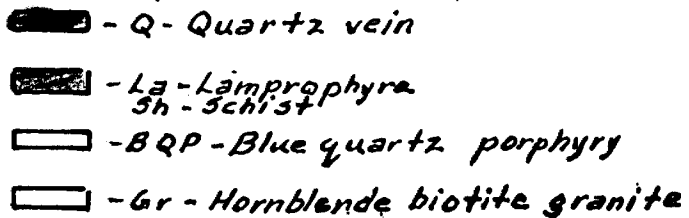 - Q - Quartz vein
- La - Lamprophyre
Sh - Schist
- BQP - Blue quartz porphyry
- Gr - Hornblende biotite granite